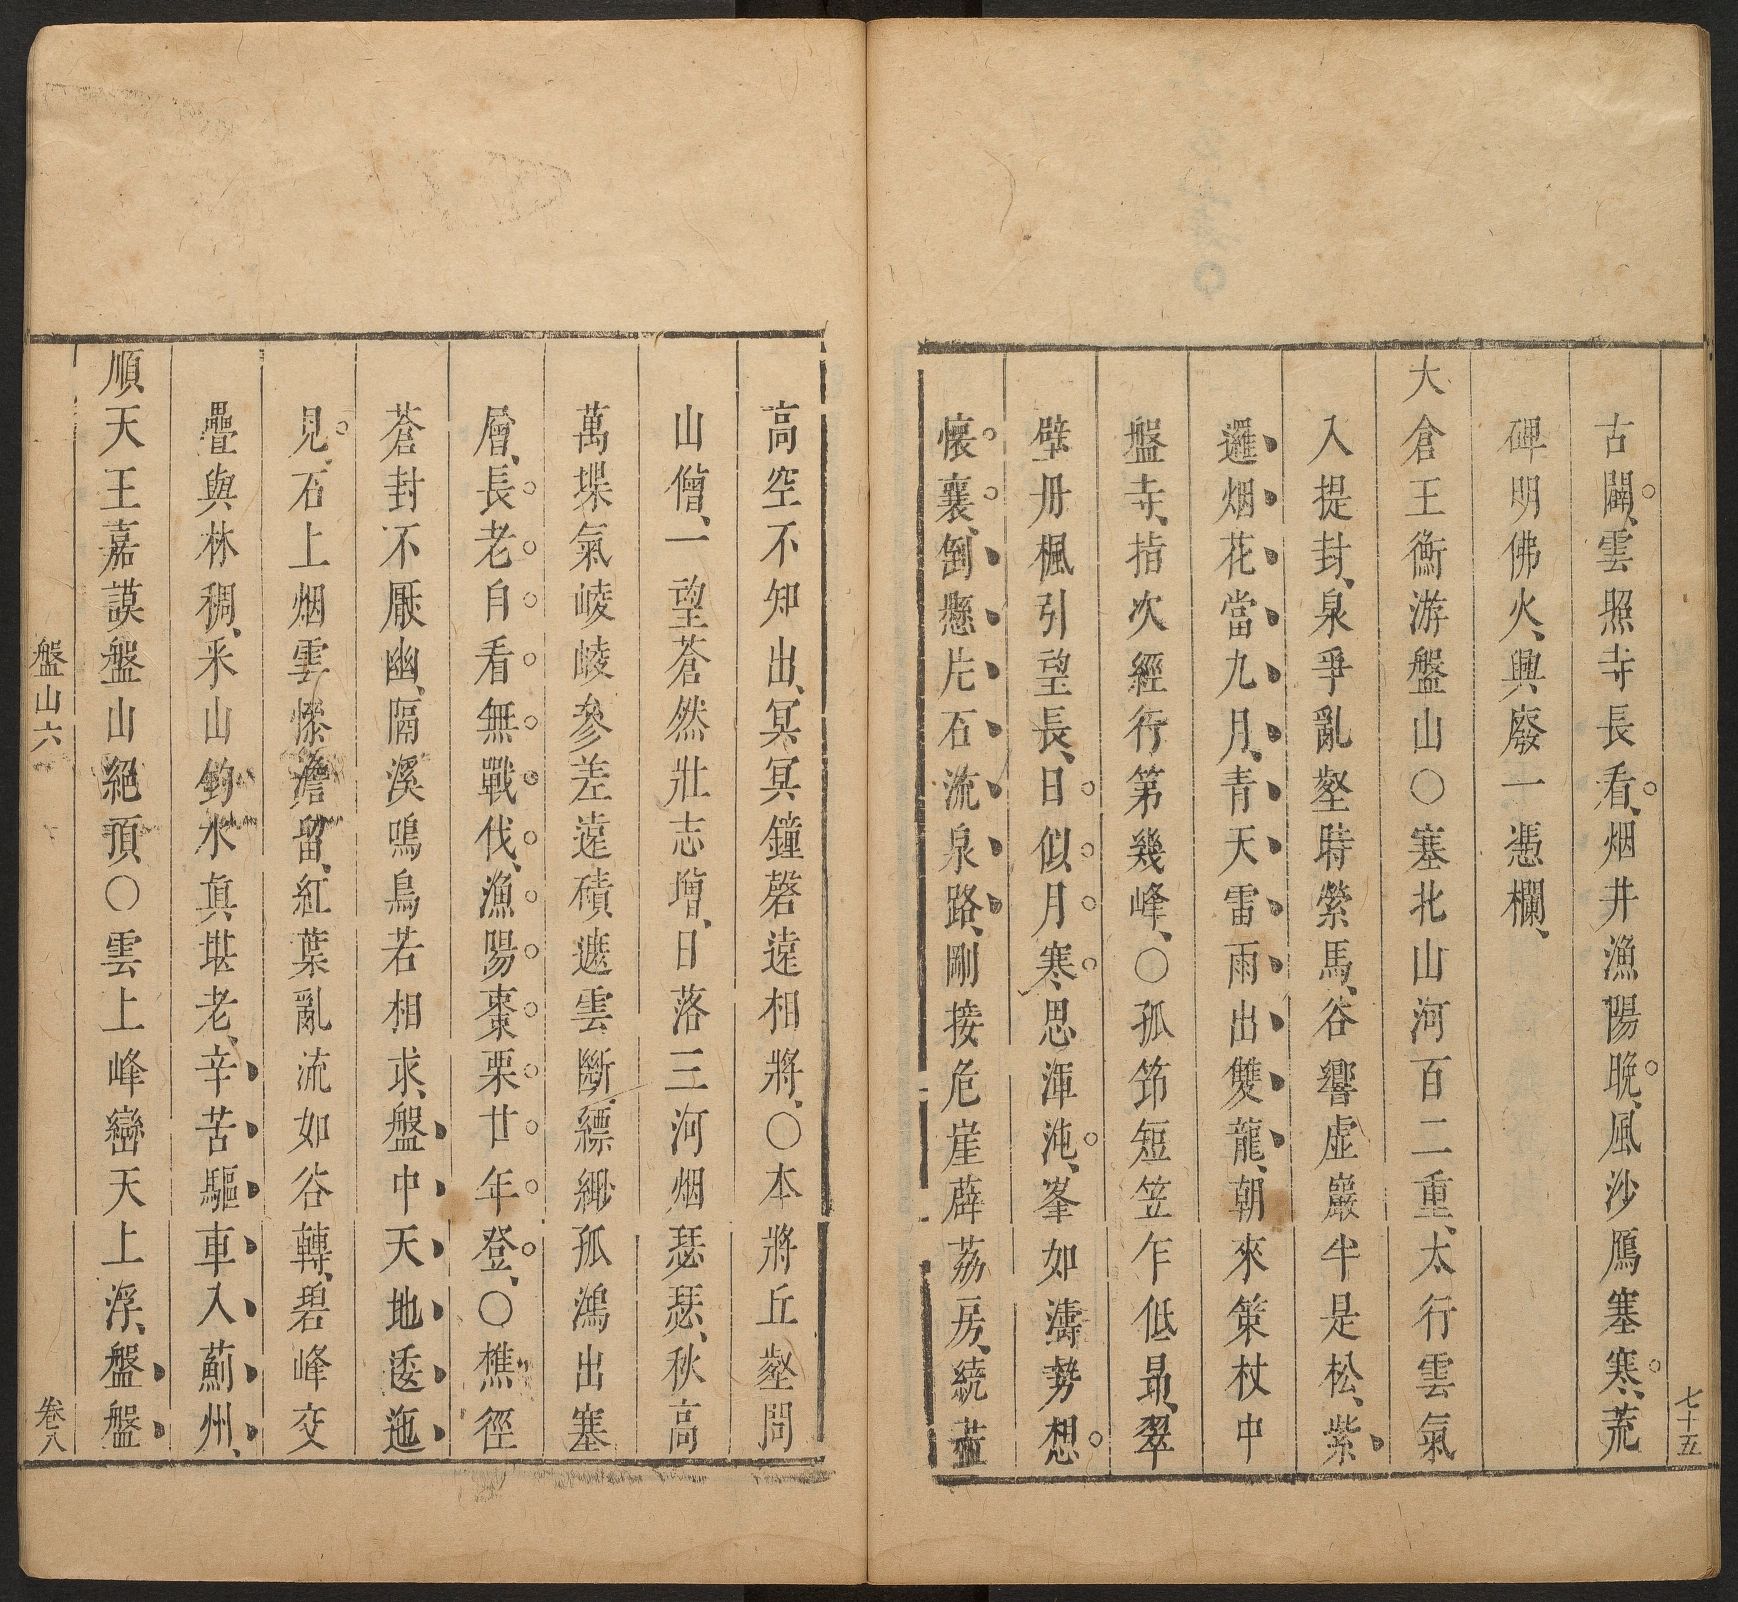 七十五
古闢、雲照寺長看、烟井漁陽晚、風沙鴈塞寒、荒
碑明佛火、興廢一憑欄、
大倉王衡游盤山〇塞北山河百二重、太行雲氣
入提封、泉爭亂壑時縈馬、谷響虛巖半是松、紫
邏烟花當九月、青天雷雨出雙龍、朝來策杖中
盤寺、指次經行第幾峰、〇孤笻短笠乍低昻、翠
壁丹楓引望長、日似月寒思渾沌、峯如濤勢想
懷襄、倒懸片石流泉路、剛接危崖薜荔房、繞葢
高空不知出、冥冥鐘磬遠相將、〇本將丘壑問
山僧、一望蒼然壯志增、日落三河烟瑟瑟、秋高
萬堞氣崚崚參差遠磧遮雲斷、縹緲孤鴻出塞
層、長老自看無戰伐、漁陽棗栗廿年登、〇樵徑
蒼封不厭幽、隔溪鳴鳥若相求、盤中天地逶迤
見、石上烟雲憏㦬留、紅葉亂流如谷轉、碧峰交
疊與林稠、采山釣水眞堪老、辛苦驅車入薊州、
順天王嘉謨盤山絕頂〇雲上峰巒天上浮、盤盤
盤山六
卷八